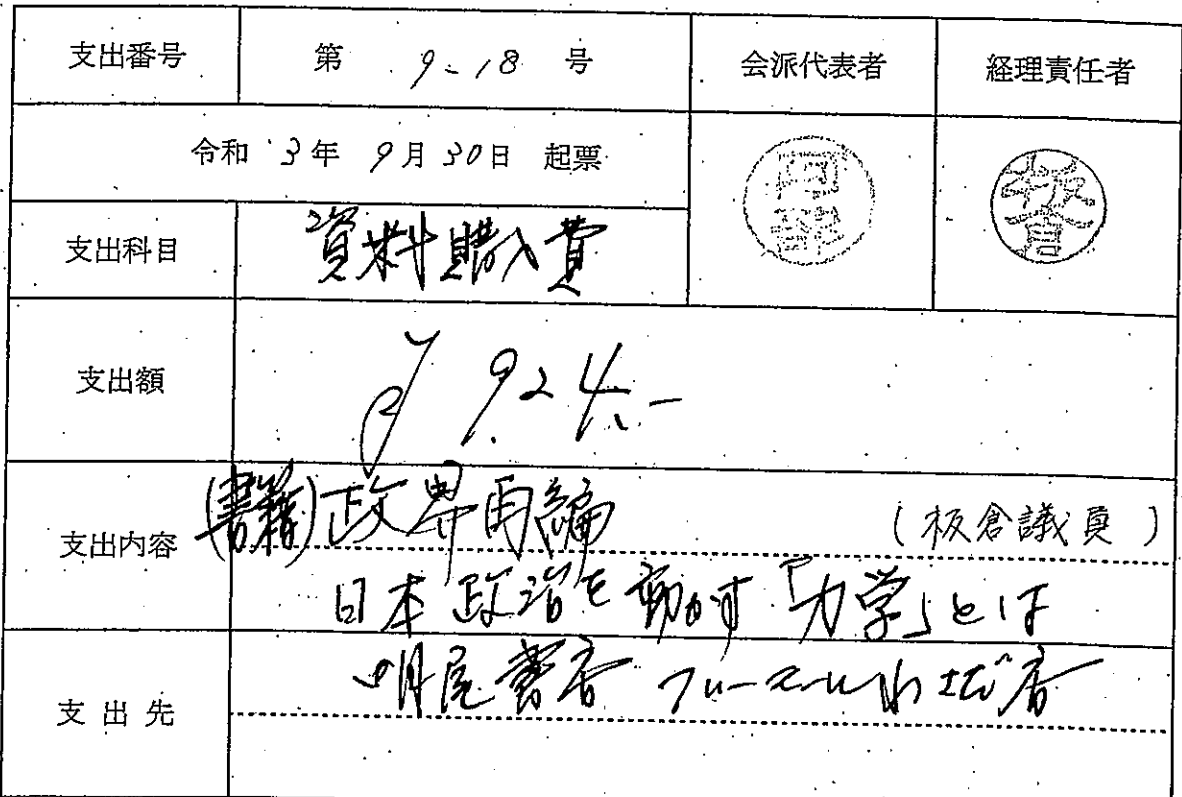 支出番号 第 9-18 号 会派代表者 経理責任者
令和 3年 9月30日 起票
支出科目 資料購入費
支出額 ¥ 924.-
支出内容 (書籍)政界再編 (板倉議員)
日本政治を動かす「力学」とは
支出先 明屋書店